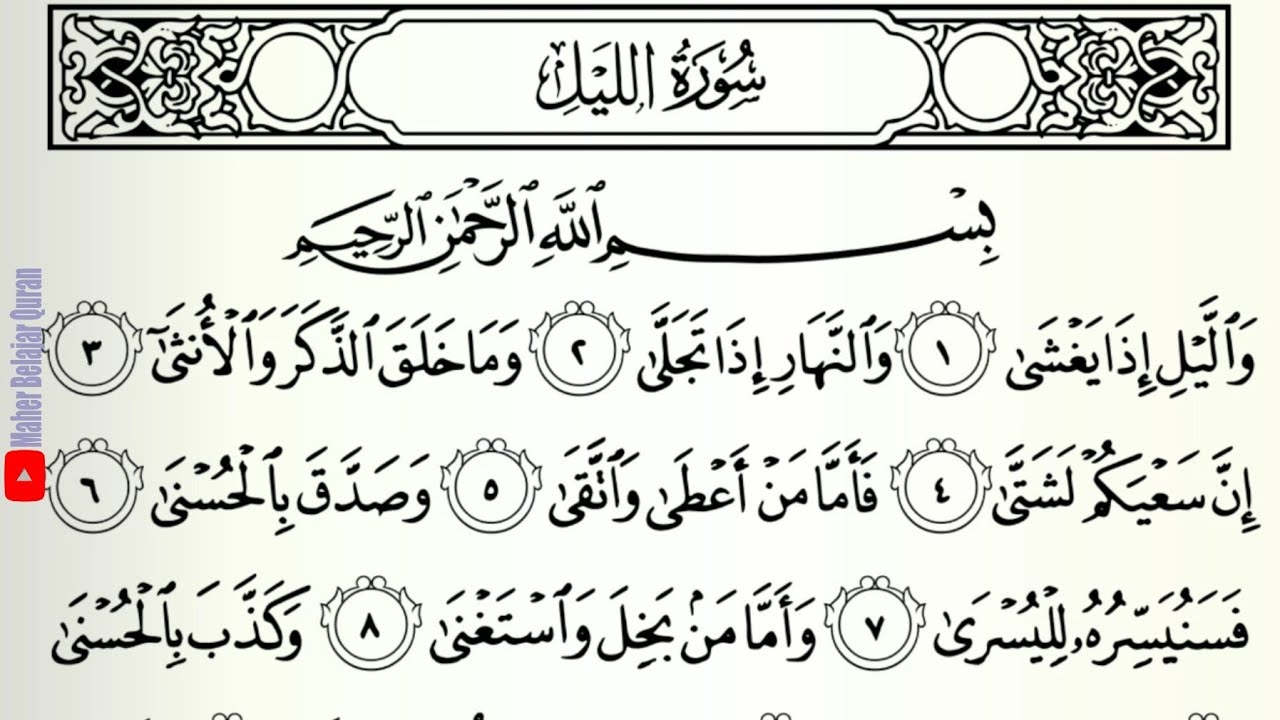 سُورَةُ اللَّيْلِ
بِسْمِ ٱللَّهِ ٱلرَّحْمَٰنِ ٱلرَّحِيمِ
وَٱلَّيْلِ إِذَا يَغْشَىٰ ١ وَٱلنَّهَارِ إِذَا تَجَلَّىٰ ٢ وَمَا خَلَقَ ٱلذَّكَرَ وَٱلْأُنثَىٰٓ ٣
إِنَّ سَعْيَكُمْ لَشَتَّىٰ ٤ فَأَمَّا مَنْ أَعْطَىٰ وَٱتَّقَىٰ ٥ وَصَدَّقَ بِٱلْحُسْنَىٰ ٦
فَسَنُيَسِّرُهُۥ لِلْيُسْرَىٰ ٧ وَأَمَّا مَنۢ بَخِلَ وَٱسْتَغْنَىٰ ٨ وَكَذَّبَ بِٱلْحُسْنَىٰ
Maher Belajar Quran